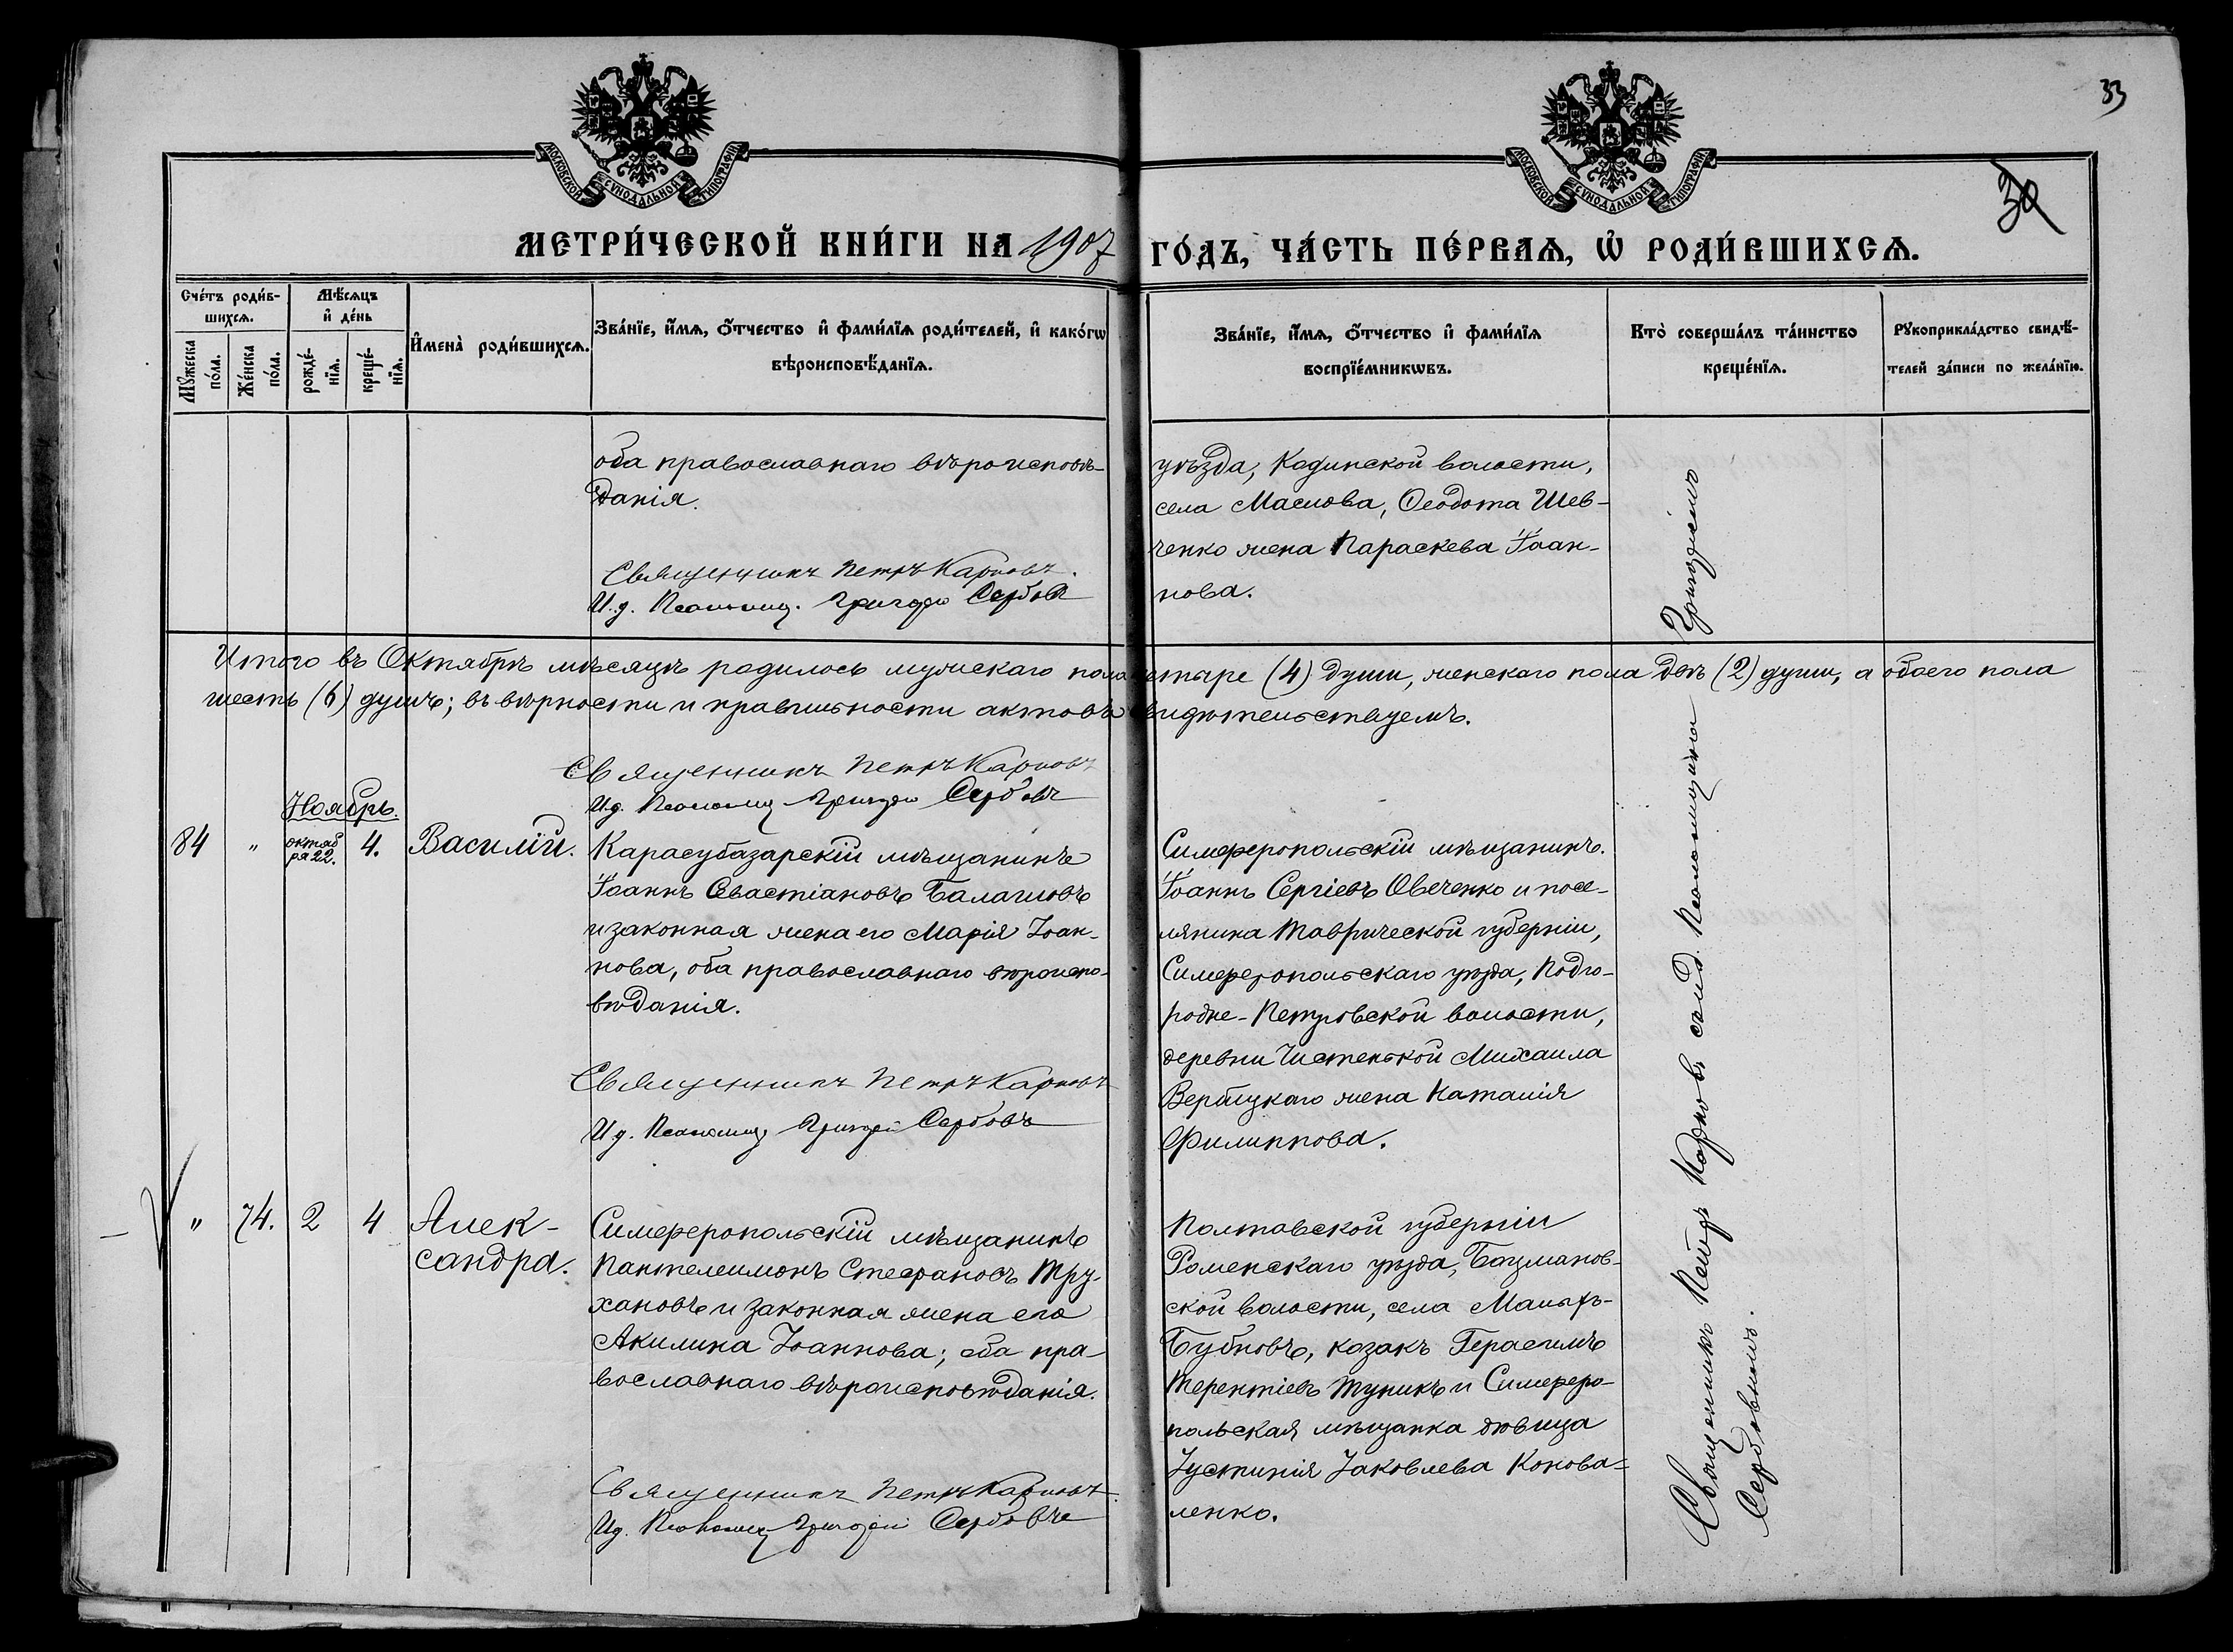 33
30
МОСКОВСКОЙ СѴНОДАЛЬНОЙ ТИПОГРАФІИ
МОСКОВСКОЙ СѴНОДАЛЬНОЙ ТИПОГРАФІИ
МЕТРИ́ЧЕСКОЙ КНИ́ГИ НА 1907 ГО́ДЪ, ЧА́СТЬ ПЕ́РВАѦ, Ѡ РОДИ́ВШИХСѦ.
Сче́тъ роди́в-
шихсѧ.
Мꙋ́жеска
по́ла.
Же́нска
по́ла.
Мѣ́сѧцъ
и҆ де́нь
рожде́-
нїѧ.
креще́-
нїѧ.
И҆мена̀ роди́вшихсѧ.
Зва́нїе, и҆́мѧ, ѻ҆́тчество и҆ фами́лїѧ роди́телей, и҆ како́гѡ
вѣроисповѣ́данїѧ.
Зва́нїе, и҆́мѧ, ѻ҆́тчество и҆ фами́лїѧ
воспрїе́мникѡвъ.
Кто̀ соверша́лъ та́инство
креще́нїѧ.
Рꙋкоприкла́дство свидѣ́-
телей за́писи по жела́нїю.
оба православнаго вѣроисповѣ-
данія.
Священникъ Петръ Карповъ.
И. д. Псаломщ. Григорій Сербовъ
уѣзда, Кадинской волости,
села Маслова, Ѳеодота Шев-
ченко жена Параскева Іоан-
нова.
Итого въ Октябрѣ мѣсяцѣ родилось мужескаго пола четыре (4) души, женскаго пола двѣ (2) души, а обоего пола
шесть (6) душъ; въ вѣрности и правильности актовъ свидѣтельствуемъ.
Священникъ Петръ Карповъ
И. д. Псаломщ Григорій Сербовъ
Ноябрь.
84
"
октяб
ря 22.
4.
Василій.
Карасубазарскій мѣщанинъ
Іоаннъ Севастіановъ Балагловъ
и законная жена его Марія Іоан-
нова, оба православнаго вѣроиспо-
вѣданія.
Священникъ Петръ Карповъ
И д. Псаломщ Григорій Сербовъ
Симферопольскій мѣщанинъ.
Іоаннъ Сергіевъ Овеченко и посе-
лянина Таврической губерніи,
Симферопольскаго уѣзда, Подго-
родне-Петровской волости,
деревни Чистенькой Михаила
Вербицкаго жена Наталія
Филиппова.
"
74.
2
4
Алек-
сандра.
Симферопольскій мѣщанинъ
Пантелеимонъ Стефановъ Тру-
хановъ и законная жена его
Акилина Іоаннова; оба пра-
вославнаго вѣроисповѣданія.
Священникъ Петръ Карповъ.
И д. Псаломщ Григорій Сербовъ
Полтавской губерніи
Роменскаго уѣзда, Бацманов-
ской волости, села Малыхъ-
Бубновъ, козакъ Герасимъ
Терентіевъ Туникъ и Симферо-
польская мѣщанка дѣвица
Іустинія Іаковлева Конова-
ленко.
Священникъ Петръ Карповъ съ и д. Псаломщика Григоріемъ
Сербовымъ.